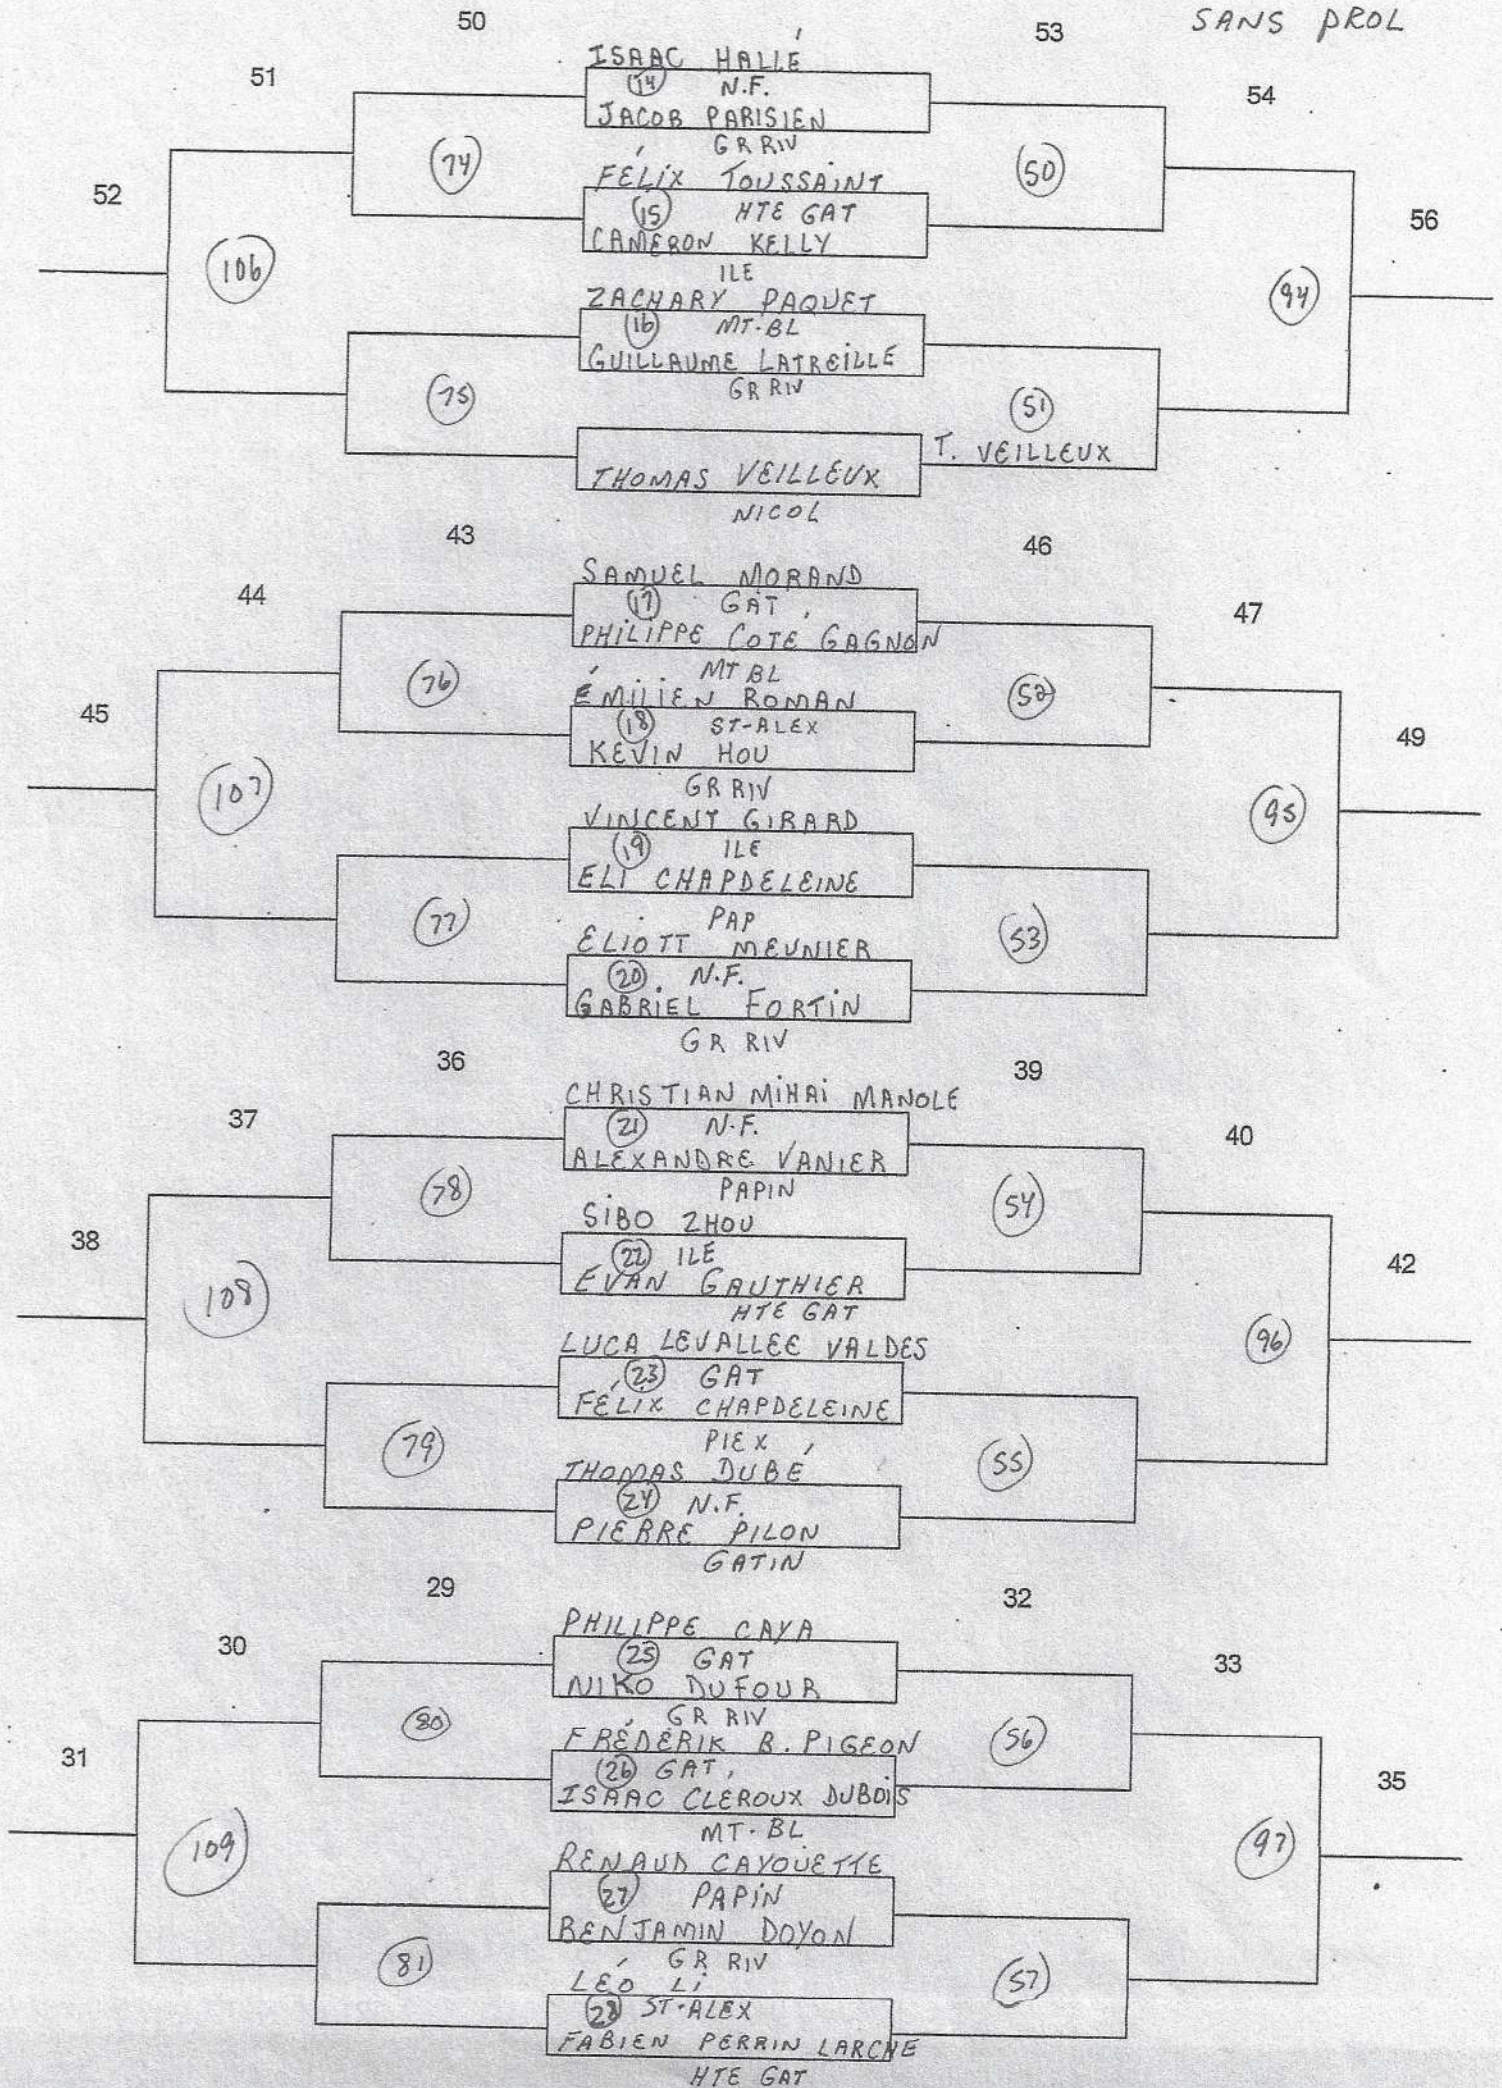 SANS PROL
50
53
51
54
ISAAC HALLÉ
14 N.F.
JACOB PARISIEN
GR RIV
74
50
52
FÉLIX TOUSSAINT
15 HTE GAT
CAMERON KELLY
ILE
56
106
94
ZACHARY PAQUET
16 MT-BL
GUILLAUME LATREILLE
GR RIV
75
51
T. VEILLEUX
THOMAS VEILLEUX
NICOL
43
46
44
47
SAMUEL MORAND
17 GAT
PHILIPPE CÔTÉ GAGNON
MT BL
76
52
45
ÉMILIEN ROMAN
18 ST-ALEX
KEVIN HOU
GR RIV
49
107
95
VINCENT GIRARD
19 ILE
ELI CHAPDELEINE
PAP
77
53
ELIOTT MEUNIER
20 N.F.
GABRIEL FORTIN
GR RIV
36
39
37
40
CHRISTIAN MIHAI MANOLE
21 N.F.
ALEXANDRE VANIER
PAPIN
78
54
38
SIBO ZHOU
22 ILE
EVAN GAUTHIER
HTE GAT
42
108
96
LUCA LEVALLEE VALDES
23 GAT
FÉLIX CHAPDELEINE
PIEX
79
55
THOMAS DUBÉ
24 N.F.
PIERRE PILON
GATIN
29
32
30
33
PHILIPPE CAYA
25 GAT
NIKO DUFOUR
GR RIV
80
56
31
FRÉDÉRIK B. PIGEON
26 GAT
ISAAC CLÉROUX DUBOIS
MT-BL
35
109
97
RENAUD CAYOUETTE
27 PAPIN
BENJAMIN DOYON
GR RIV
81
57
LÉO LI
28 ST-ALEX
FABIEN PERRIN LARCHE
HTE GAT